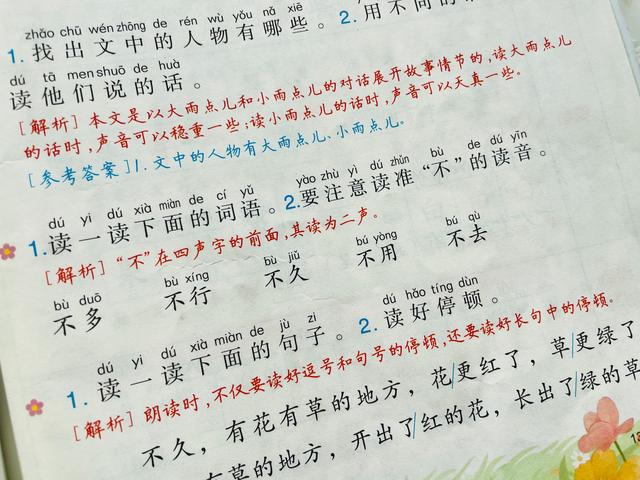 zhǎo chū wén zhōng de rén wù yǒu nǎ xiē
1.找出文中的人物有哪些。2.用不同的
dú tā men shuō de huà
读他们说的话。
[解析]本文是以大雨点儿和小雨点儿的对话展开故事情节的,读大雨点儿
的话时,声音可以稳重一些;读小雨点儿的话时,声音可以天真一些。
[参考答案]1.文中的人物有大雨点儿、小雨点儿。
dú yi dú xià miàn de cí yǔ yào zhù yì dú zhǔn bù de dú yīn
1.读一读下面的词语。2.要注意读准“不”的读音。
[解析]“不”在四声字的前面,其读为二声。
bù duō bù xíng bù jiǔ bú yòng bú qù
不多 不行 不久 不用 不去
dú yi dú xià miàn de jù zi dú hǎo tíng dùn
1.读一读下面的句子。2.读好停顿。
[解析]朗读时,不仅要读好逗号和句号的停顿,还要读好长句中的停顿。
不久,有花有草的地方,花/更红了,草/更绿了
有草的地方,开出了/红的花,长出了/绿的草